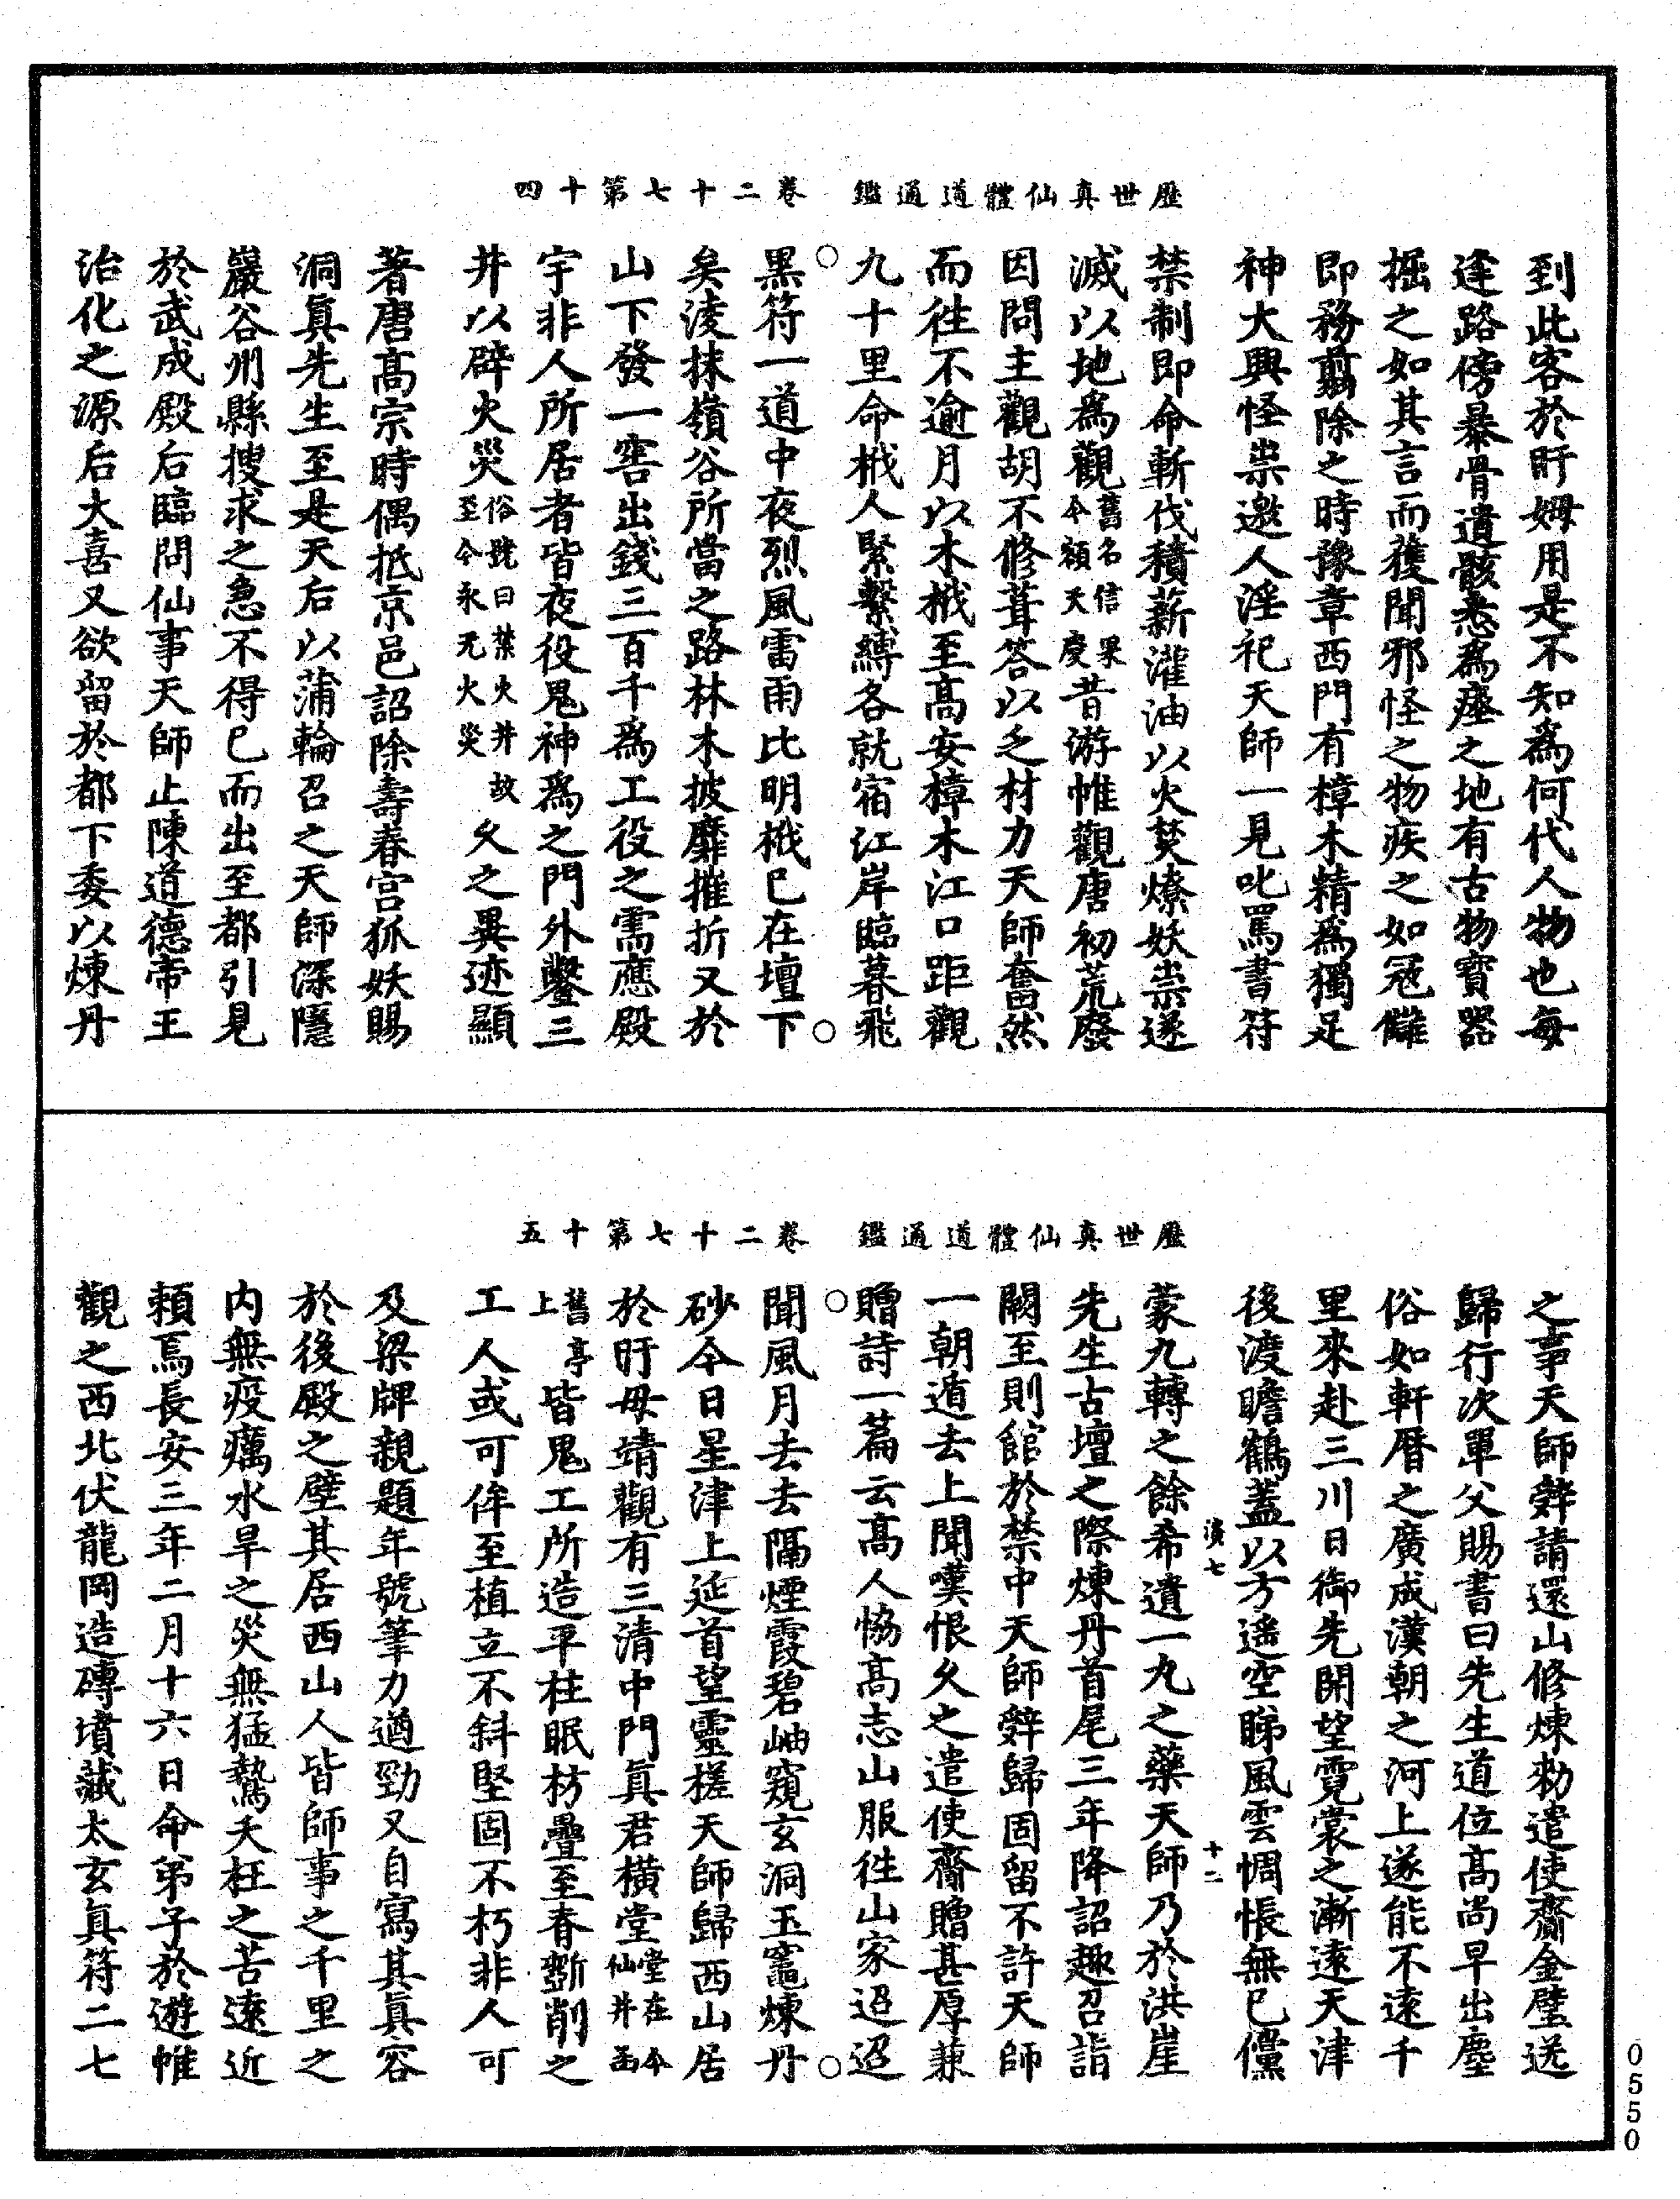 歷世真仙體道通鑑　卷二十七第十四
到此客於盱姆用是不知爲何代人物也每
逢路傍暴骨遺骸悉爲瘞之地有古物寶器
掘之如其言而獲聞邪怪之物疾之如冦讎
即務翦除之時豫章西門有樟木精爲獨足
神大興怪祟邀人淫祀天師一見叱罵書符
禁制即命斬伐積薪灌油以火焚燎妖祟遂
滅以地爲觀舊名信果今額天慶昔游帷觀唐初荒廢
因問主觀胡不修葺答以乏材力天師奮然
而往不逾月以木栰至高安樟木江口距觀
九十里命栰人緊繫縛各就宿江岸臨暮飛
黑符一道中夜烈風雷雨比明栰已在壇下
矣淩抹嶺谷所當之路林木披靡摧折又於
山下發一窖出錢三百千爲工役之需應殿
宇非人所居者皆夜役鬼神爲之門外鑿三
井以辟火災俗號曰禁火井故至今永无火災久之異迹顯
著唐高宗時偶抵京邑詔除壽春宫狐妖賜
洞真先生至是天后以蒲輪召之天師深隱
巖谷州縣搜求之急不得已而出至都引見
於武成殿后臨問仙事天師止陳道德帝王
治化之源后大喜又欲留於都下委以煉丹
歷世真仙體道通鑑　卷二十七第十五
之事天師辭請還山修煉勑遣使齎金璧送
歸行次單父賜書曰先生道位高尚早出塵
俗如軒曆之廣成漢朝之河上遂能不遠千
里來赴三川日御先開望霓裳之漸遠天津
後渡瞻鶴蓋以方遥空睇風雲惆悵無已儻
蒙九轉之餘希遺一丸之藥天師乃於洪崖
先生古壇之際煉丹首尾三年降詔趣召詣
闕至則館於禁中天師辭歸固留不許天師
一朝遁去上聞嘆恨久之遣使齎贈甚厚兼
贈詩一篇云高人協高志山服往山家迢迢
聞風月去去隔煙霞碧岫窺玄洞玉竈煉丹
砂今日星津上延首望靈槎天師歸西山居
於盱母靖觀有三清中門真君横堂堂在今仙井函
舊亭上皆鬼工所造平柱眠枋疊至脊斲削之
工人或可侔至植立不斜堅固不朽非人可
及梁牌親題年號筆力遒勁又自寫其真容
於後殿之壁其居西山人皆師事之千里之
内無疫癘水旱之災無猛鷙夭枉之苦遠近
頼焉長安三年二月十六日命弟子於遊帷
觀之西北伏龍岡造磚墳藏太玄真符二七
演七　十二
0550